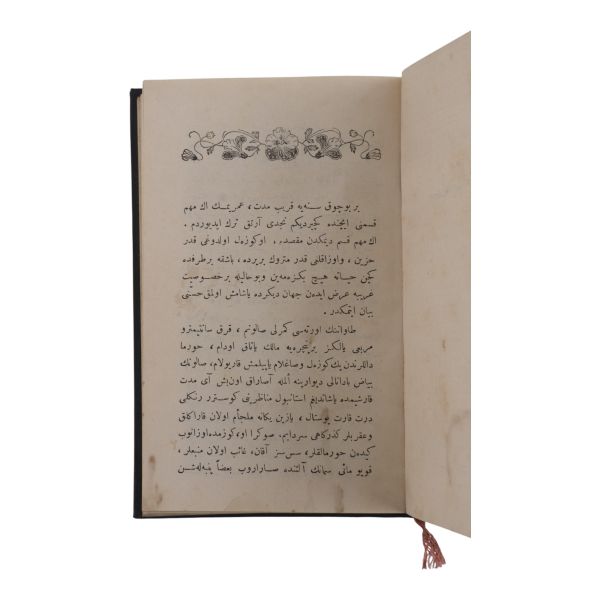 بر بوچوق سنه‌یه قریب مدت، عمریمك اك مهم
قسمنی ایچنده كچیردیكم نجدی آرتق ترك ایدیوردم.
اك مهم قسم دیمكدن مقصدم، او كوزل اولدوغی قدر
حزین، و اوزاقلغی قدر متروك بریرده، باشقه برطرفده
كچن حیاته هیچ بكزه‌مه‌ین و بو حالیله بر خصوصیت
غریبه عرض ایدن جهان دیكرده یاشامش اولمق حسنی
بیان ایتمكدر.
طاواننك اورته‌سی كمرلی صالونم، قرق سانتیمترو
مربعی یالكز برپنجره‌یه مالك یاتاق اودام، خورما
داللرندن پك كوزل و صاغلام یاپیلمش قاریولام، صالونك
بیاض بادانالی دیوارینه ألمله آصاراق اون‌بش آی مدت
قارشیمده یاشاندیغم استانبول مناظرینی كوسترر رنكلی
درت قارت پوستال، یازین یكانه ملجأم اولان قاراكلق
و عقربلر كذركاهی سردابم، صوكرا او، كوزمده اوزانوب
كیدن خورمالقلر، سس‌سز آقان، غائب اولان منبعلر،
قویو مائی سمانك آلتنده صاراروب بعضاً پنبه‌لشن